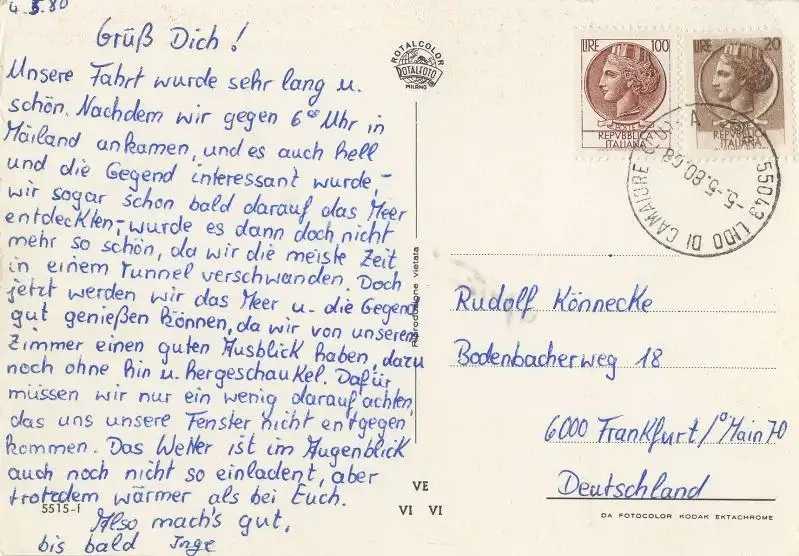 4.5.80
Grüß Dich!
Unsere Fahrt wurde sehr lang u.
schön. Nachdem wir gegen 6⁰⁰ Uhr in
Mailand ankamen, und es auch hell
und die Gegend interessant wurde,-
wir sogar schon bald darauf das Meer
entdeckten,- wurde es dann doch nicht
mehr so schön, da wir die meiste Zeit
in einem Tunnel verschwanden. Doch
jetzt werden wir das Meer u. die Gegend
gut genießen können, da wir von unserem
Zimmer einen guten Ausblick haben, dazu
noch ohne hin u. hergeschaukel. Dafür
müssen wir nur ein wenig darauf achten,
das uns unsere Fenster nicht entgegen
kommen. Das Wetter ist im Augenblick
auch noch nicht so einladent, aber
trotzdem wärmer als bei Euch.
5515-f
Also mach's gut,
bis bald Inge
ROTALCOLOR
ROTALFOTO
MILANO
Riproduzione vietata
VE
VI VI
LIRE 100
REPVBBLICA
ITALIANA
LIRE 20
REPVBBLICA
ITALIANA
55043 LIDO DI CAMAIORE
5.-5.80
Rudolf Könnecke
Bodenbacherweg 18
6000 Frankfurt/Main 70
Deutschland
DA FOTOCOLOR KODAK EKTACHROME